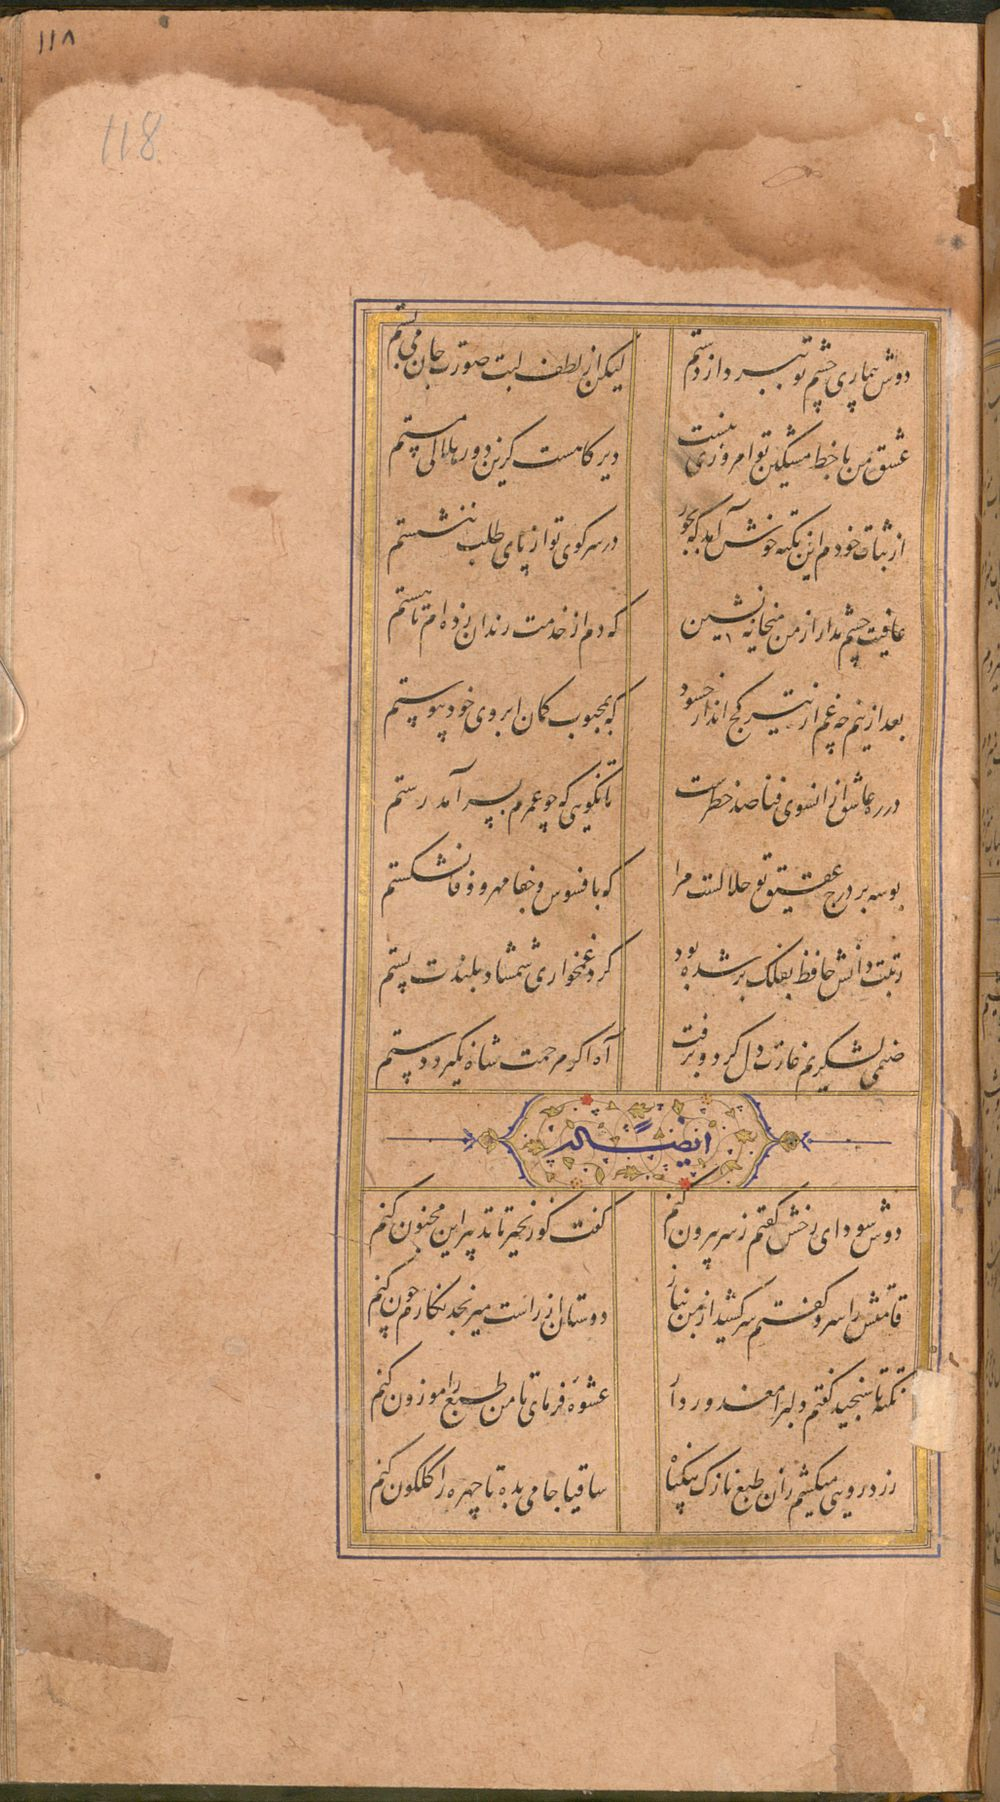 ۱۱۸
118
دوش بیماری چشم تو ببرد از دستم لیکن از لطف لبت صورت جان می بستم
عشق من با خط مشکین تو امروزی نیست دیر کاهست کزین دور هلالی مستم
از ثبات خودم این نکته خوش آمد که بجور در سر کوی تو از پای طلب ننشستم
عافیت چشم مدار از من میخانه نشین که دم از خدمت رندان زده ام تا هستم
بعد ازینم چه غم از تیر کج انداز حسود که بمحبوب کمان ابروی خود پیوستم
در ره عاشق از انسوی فنا صد خطرست تا نگویی که چو عمرم بسر آمد رستم
بوسه بر درج عقیق تو حلالست مرا که بافسوس و جفا مهر و وفا نشکستم
رتبت دانش حافظ بفلک بر شده بود کرد غمخواری شمشاد بلندت پستم
صنمی لشکریم غارت دل کرد و برفت آه اگر مرحمت شاه نگیرد دستم
ایضاً له
دوش سودای رخش گفتم ز سر بیرون کنم گفت کو زنجیر تا تدبیر این مجنون کنم
قامتش را سرو گفتم سر کشید از من بناز دوستان از راست میرنجد نگارم چون کنم
نکته ناسنجیده گفتم دلبرا معذور دار عشوه فرمای تا من طبع را موزون کنم
زرد رویی میکشم زان طبع نازک بیگناه ساقیا جامی بده تا چهره را گلگون کنم